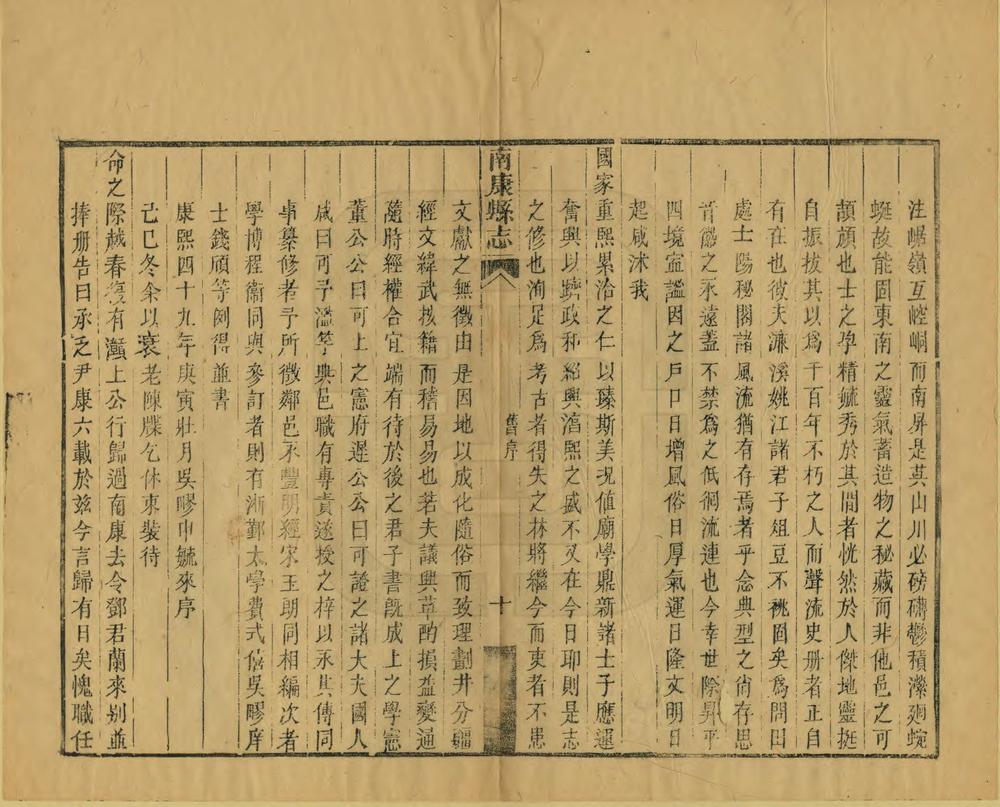 注崌嶺互崆峒而南屏是其山川必磅礴鬱積瀠廻蜿
蜒故能固東南之靈氣蓄造物之秘藏而非他邑之可
頡頏也士之孕精毓秀於其間者恍然於人傑地靈挺
自振拔其以爲千百年不朽之人而聲流史册者正自
有在也彼夫濂溪姚江諸君子俎豆不祧固矣爲問田
處士陽秘閣諸風流猶有存焉者乎念典型之尚存思
首邱之永遠蓋不禁爲之低徊流連也今幸世際昇平
四境寍謐因之戸口日增風俗日厚氣運日隆文明日
起咸沐我
國家重熙累洽之仁以臻斯美况值廟學鼎新諸士子應運
奮興以躋政和紹興湻熙之盛不又在今日耶則是志
之修也洵足爲考古者得失之林將繼今而吏者不患
南康縣志
舊序
十
文獻之無徵由是因地以成化隨俗而致理劃井分疆
經文緯武按籍而稽易易也若夫議興革酌損益變通
隨時經權合宜端有待於後之君子書旣成上之學憲
董公公曰可上之憲府遲公公曰可證之諸大夫國人
咸曰可予濫竽典邑職有專責遂授之梓以永其傳同
事纂修者予所徵鄰邑永豐明經宋玉朗同相編次者
學博程衞同與參訂者則有淅鄞太學費式僖吳郡庠
士錢頎等例得並書
康熙四十九年庚寅壯月吳郡申毓來序
己巳冬余以衰老陳牒乞休束裝待
命之際越春復有灨上公行歸過南康去令鄧君蘭來别並
捧册告曰承乏尹康六載於兹今言歸有日矣愧職任